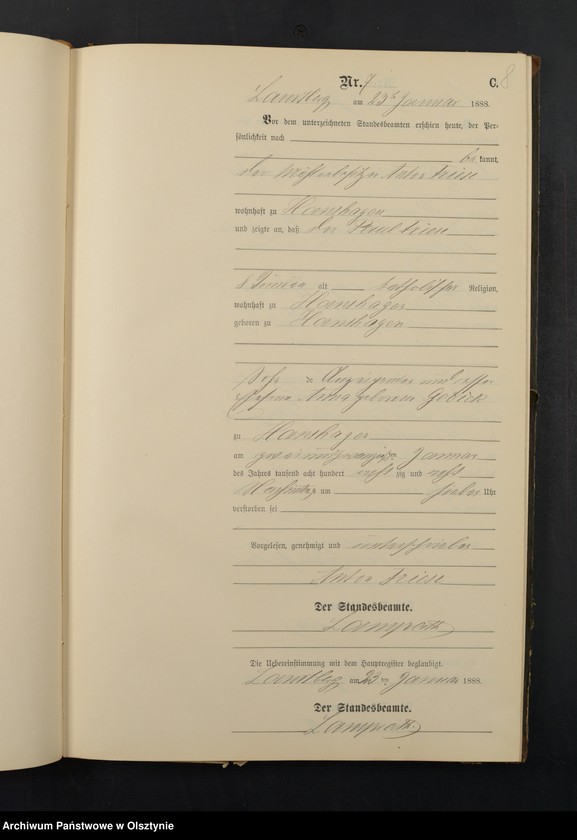 Nr. 7 C. 8
Landsberg am 23ten Januar 1888.
Vor dem unterzeichneten Standesbeamten erschien heute, der Per-
sönlichkeit nach
be kannt,
der Anton Friese
wohnhaft zu Hanshagen
und zeigte an, daß der Paul Friese
alt katholischer Religion,
wohnhaft zu Hanshagen
geboren zu Hanshagen
Sohn des Anzeigenden und dessen
Ehefrau Anna geborene
zu Hanshagen
am zweiundzwanzigsten Januar
des Jahres tausend acht hundert acht zig und acht
Nachmittags um sieben Uhr
verstorben sei
Vorgelesen, genehmigt und unterschrieben
Anton Friese
Der Standesbeamte.
Die Uebereinstimmung mit dem Hauptregister beglaubigt.
Landsberg am 23ten Januar 1888.
Der Standesbeamte.
Archiwum Państwowe w Olsztynie